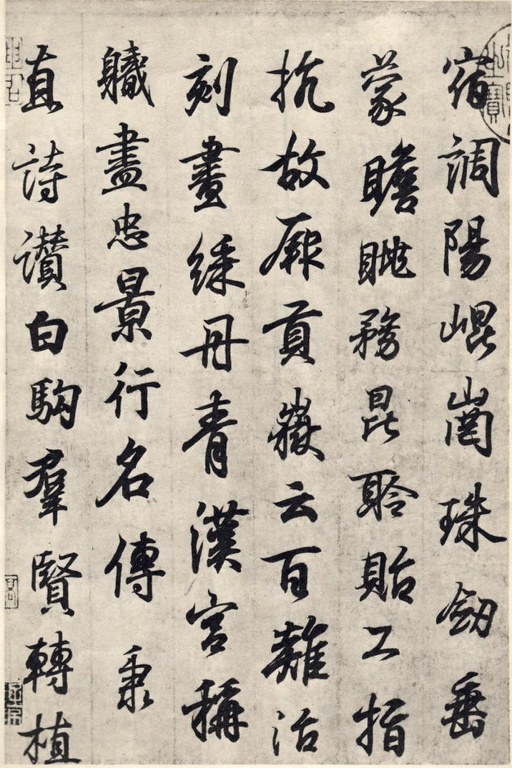 宿調陽崐崗珠劒垂
蒙瞻眺務昆聆貽工指
抗故厥貢嶽云百離治
刻畫綵丹青漢宮稱
軄盡忠景行名傳秉
直詩讚白駒羣賢轉植